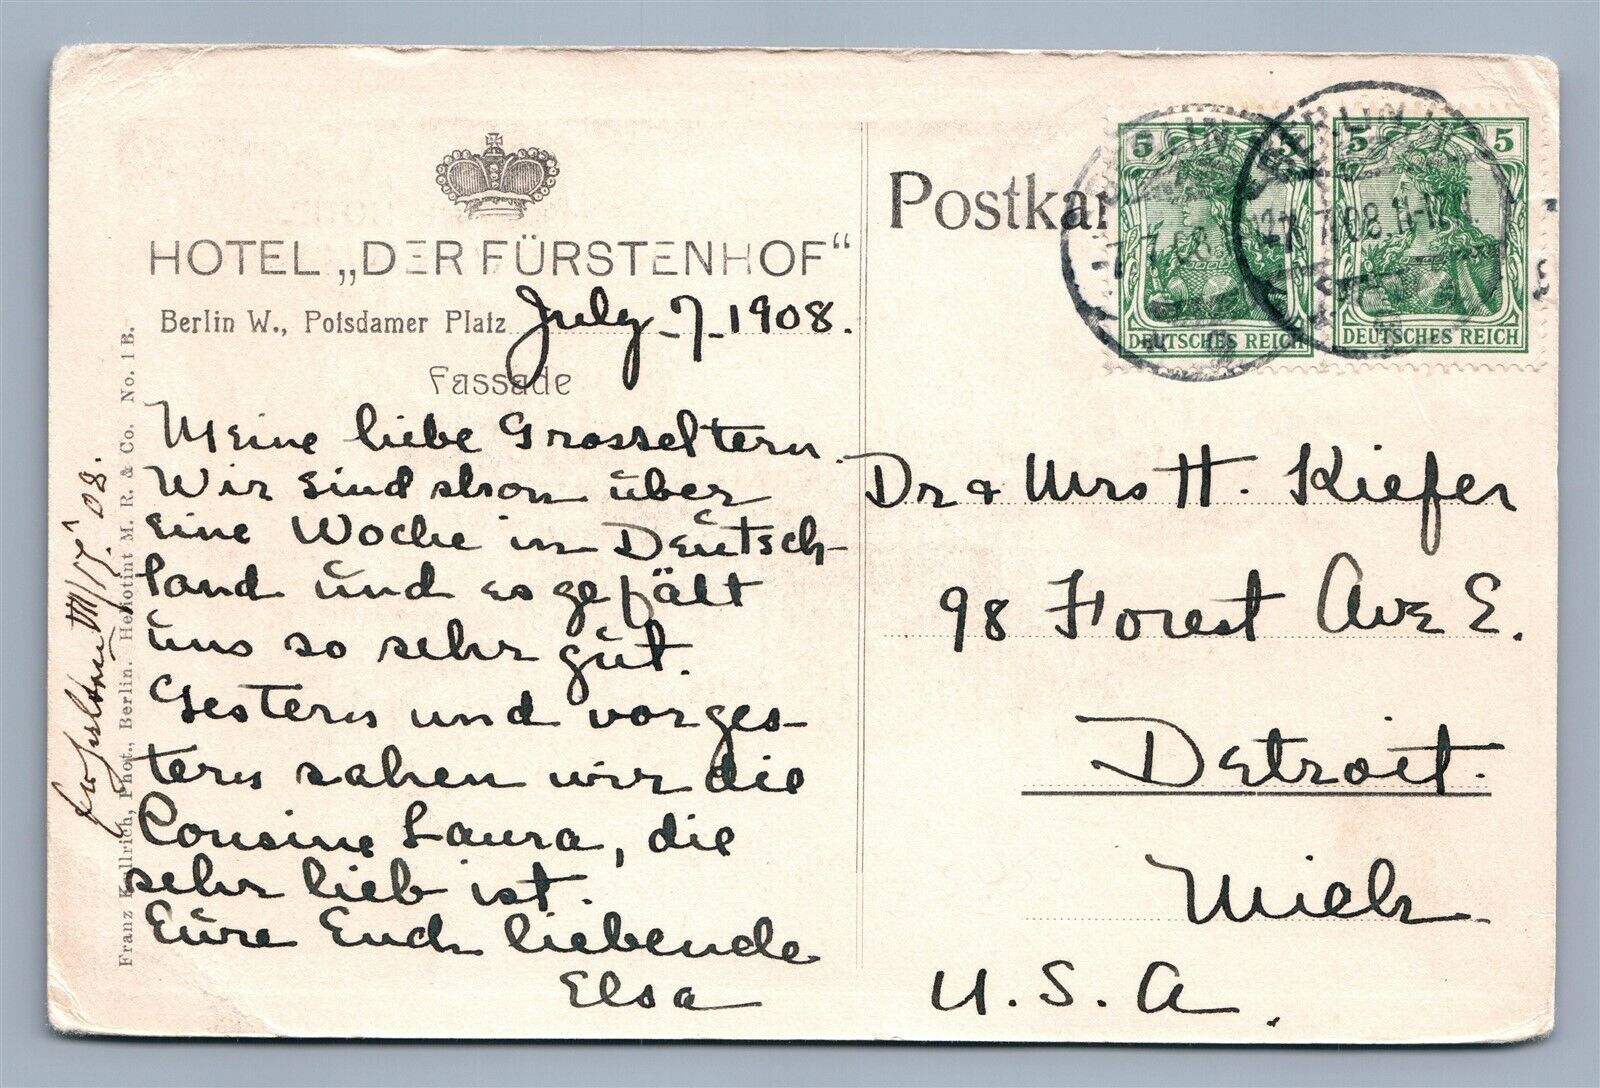 HOTEL „DER FÜRSTENHOF“
Berlin W., Potsdamer Platz July 7. 1908.
Fassade
Meine liebe Grosseltern.
Wir sind schon über
eine Woche in Deutsch-
land und es gefält
uns so sehr gut.
Gestern und vorges-
tern sahen wir die
Cousine Laura, die
sehr lieb ist.
Eure Euch liebende
Elsa
Franz Kullrich, Phot., Berlin. Heliotint M. R. & Co. No. 1 B.
VII/17. 08.
Postkar
5 5
DEUTSCHES REICH
5 5
DEUTSCHES REICH
BERLIN
7.7.08
BERLIN
7.08.11-12
Dr & Mrs H. Kiefer
98 Forest Ave E.
Detroit.
Mich
U. S. A.